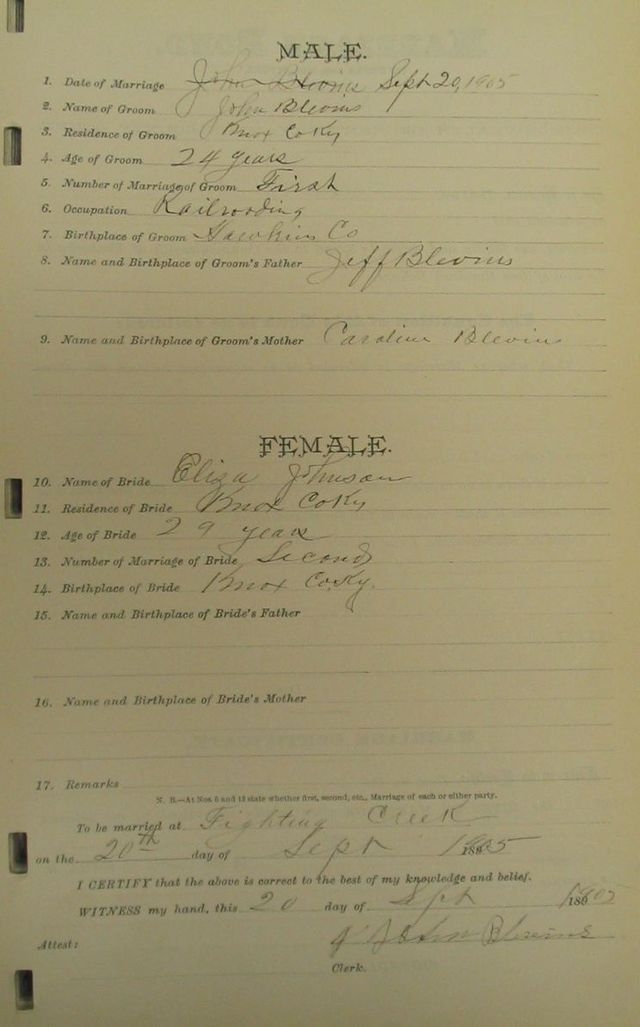 MALE.
1. Date of Marriage John Blevins Sept 20, 1905
2. Name of Groom John Blevins
3. Residence of Groom Knox Co Ky
4. Age of Groom 24 years
5. Number of Marriage of Groom First
6. Occupation Railroading
7. Birthplace of Groom Hawkins Co
8. Name and Birthplace of Groom's Father Jeff Blevins
9. Name and Birthplace of Groom's Mother Caroline Blevins
FEMALE.
10. Name of Bride Eliza Johnson
11. Residence of Bride Knox Co Ky
12. Age of Bride 29 years
13. Number of Marriage of Bride Second
14. Birthplace of Bride Knox Co. Ky.
15. Name and Birthplace of Bride's Father
16. Name and Birthplace of Bride's Mother
17. Remarks
N. B.—At Nos. 5 and 13 state whether first, second, etc., Marriage of each or either party.
To be married at Fighting Creek
on the 20th day of Sept 1905
I CERTIFY that the above is correct to the best of my knowledge and belief.
WITNESS my hand, this 20 day of Sept 1905
Attest: John Blevins
Clerk.